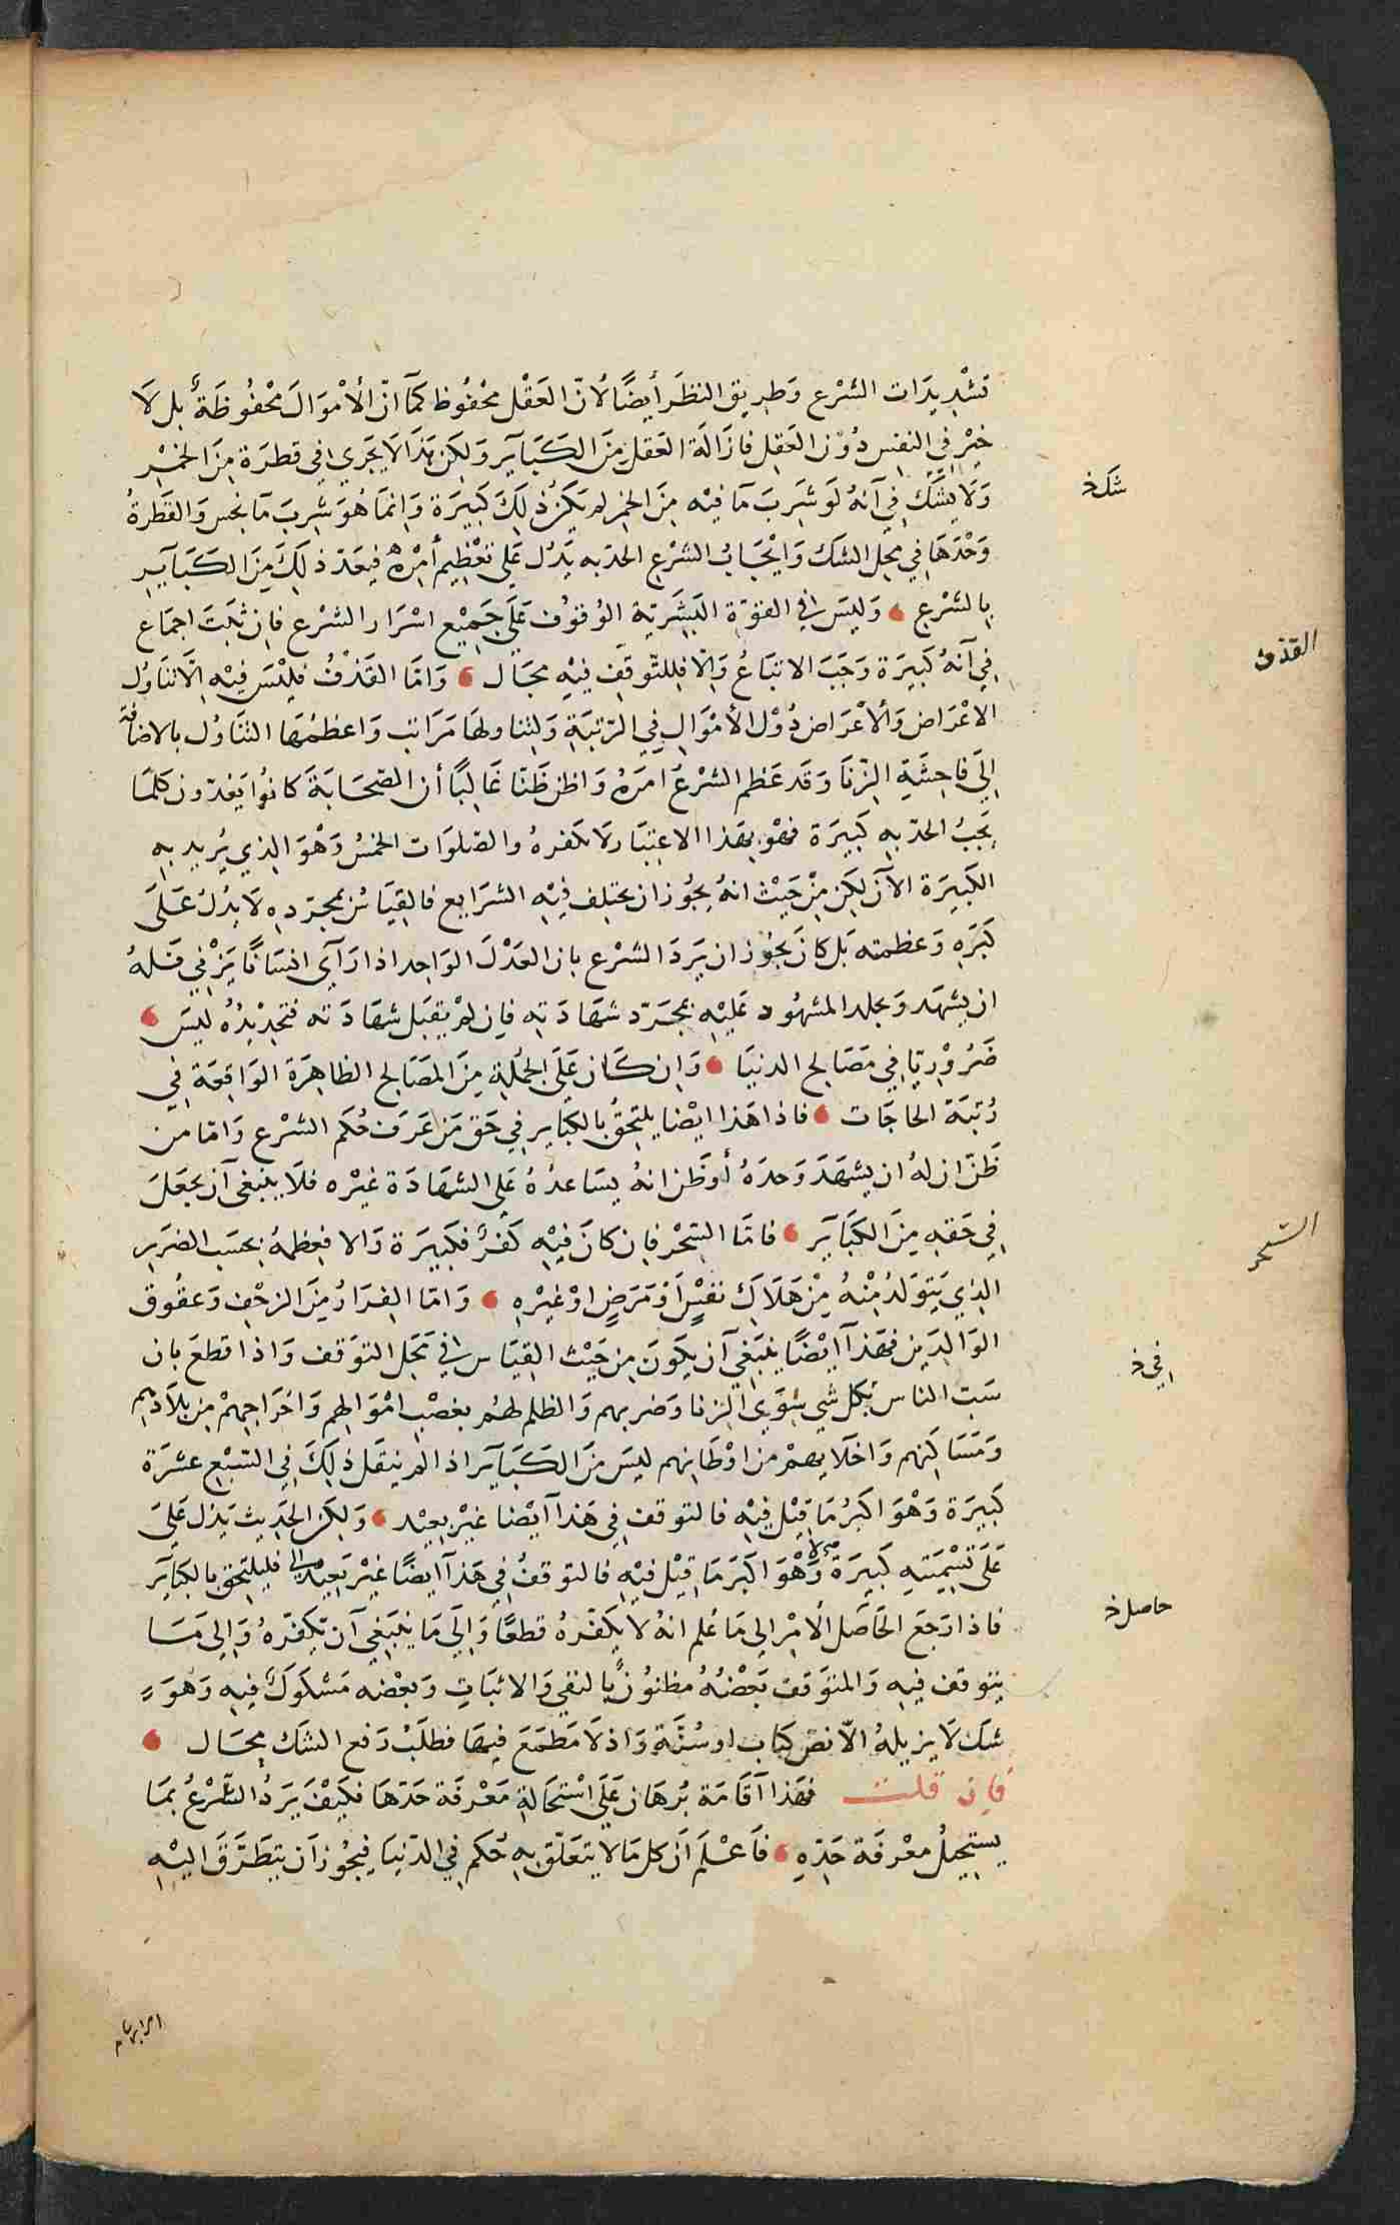 تَشْدِيدَات الشَرْع وَطرِيق النظَر أيضًا لأنّ العَقْل محْفُوظ كمَآ انّ الأمْوَالَ محْفوُظَةٌ بل لَا
خيْر في النفِس دُوْن العَقِل فازَالَة العَقلِ مِنَ الكَبَآيَر وَلكَن هَذَا لَا يَجَرِي في قطرَة مِنَ الخمْر
وَلَا يشكّ في آنهُ لَو شرَبَ مَآ فيْه مِنَ الخمِر لم يَكنُ ذلِكَ كبِيَرة وَانمَا هُوَ شرِبَ مَآ نجس وَالقَطرةُ
وَحْدَهَا في محِل الشَك وَايْجَابُ الشَرْع الحدّ به يَدُل عَلي تعْظِيم أمْرهْ فيعَدّ ذلِكَ مِنَ الكَبَآيِر
بِالشَرْع ، وَليسَ في القوّة البَشَريّة الوُقوُف عَلَى جَمِيْع اسْرَار الشرْع فان ثبَتَ اجمَاع
في آنهُ كَبِيَرة وَجَبَ الاتبَاعُ وَالّا فللتّوقَف فيْهِ مجَال ، وَامّا القَذْفُ فليْسَ فيْه الّا تنَاوُل
الاعْرَاض وَالأعْرَاض دُوْن الأمْوَال في الرّتبَةِ وَلتناولهَا مَرَاتب وَاعظمُهَا التنَاوُل بالاضافة
إلي فاحِشَةِ الزّنَا وَقَد عَظم الشرْعُ امرَهُ وَاظن ظَنّا غَالبًا أن الصّحَابَةَ كانوُا يَعدّون كلمَا
يَجبُ الحدّ بِه كَبيَرة فهْو بهَذا الاعِتبَار لَا تكفرهُ والصّلوَات الخمسُ وَهْوَ الذِي يُريدُ بِهِ
الكَبيَرة الآن لكِن مِنْ حَيْث انهُ يجُوز ان يختِلف فيْهِ الشرَايع فالقِيَاسُ بمجرّدِهِ لَا يدُل عَلَى
كبَرَهِ وَعظمته بَل كَانَ يجُوز ان يَرَدَ الشرْع بان العَدْلَ الوَاحد اذا رَآي انسَانًا يَزني فَلهُ
ان يشهَد وَيجلد المشهُود عَليْهِ بمجَرّد شهَادَتِه فاِن لمْ يقبَل شهَادَته فتحِدْيدُهُ ليسَ ،
ضَرُوْريّا في مَصَالح الدنيَا ، وَان كَان عَلَي الجمُلةِ مِنَ المصَالح الظاهِرَة الوَاقِعَة في
رُتبَة الحاجَات ، فاذا هَذا ايْضا يلتحَقُ بالكبَاير في حَق مَن عَرَف حُكَم الشرْع وَامّا من
ظَنّ ان لهُ ان يشهَدَ وَحدَهُ أوْظَن انهُ يسَاعدُهُ عَلى الشهَادَة غيْره فلَا ينبغي آن يجعَلَ
في حَقهِ مِنَ الكبَآيَر ، فامَّا السِّحْر فاِن كانَ فيْهِ كفرٌ فكَبِيرَة وَالا فعِظمهُ بحسَب الضرَر
الذِي يَتوَلدُ مِنْهُ مِنْ هَلَاكَ نفسٍ أوْ مَرَضٍ اوْ غيْرِهِ ، وَامّا الفِرَارُ مِنَ الزحْف وَعقُوق
الوَالدَين فهَذآ ايْضًا ينبَغي آن يكَونَ مِن حَيْث القيَاس في محَل التوَقف وَاذا قطعَ بان
سَبّ الناس بكل شي سِوَي الزنا وَضربهم وَالظلم لهُم بغصْب امْوَالهم وَاخرَاجِهمْ مِن بلَادَهِم
وَمَسَاكنهم وَاخلَايِهمْ من اوْطَانِهم ليسَ مِنَ الكَبَآيَر اذا لم ينقَل ذلِكَ في السّبْعِ عشرَة
كَبيرَة وَهْوَ اكبرُ مَا قِيْل فيْهِ فالتوقف في هَذآ آيضا غيْر بعِيْد ، وَلكن الحدِيث يَدُل عَلَى
عَلَى تسْمِيَتِهِ كَبِيَرة وَهْوَ اكَبَر مَا قِيْل فيْهِ فالتوقفُ في هَذآ آيضًا غيْر بَعِيْدٍ فليلتحق بالكبَآيَر
فاذا رَجَعَ الحَاصَل الأمْر الي مَا عُلم انهُ لَا يكَفّرهُ قطعًا وَالَي مَا ينبَغي آن تكَفّرهُ وَالي مَا
يتوقف فيهِ وَالمتوَقف بَعْضُهُ مظنوُنٌ بالنفي وَالاثبَاتِ وَبعْضه مَشكوَكٌ فِيهِ وَهوَ
شكٌ لَا يزيلهُ الّا نصّ كتَاب اوسُنّةٍ وَاذ لَا مَطمَعَ فيهَا فطلَبُ رَفع الشَك محَال ،
فان قلت فهَذا آقَامَة بُرهَان عَلَى اسْتحَالةِ مَعْرفَة حَدّهَا فكَيْفَ يَرَدُ الشّرْعُ بمَا
يستحِيلُ معْرفَة حَدّهِ ، فَاعْلمَ أن كل مَا لا يتعَلّق بِهِ حُكم في الدّنيَا فيجُوْز اَن يتطَرَّقَ اليْهِ
شك خ
القذف
السحر
في خ
حاصل خ